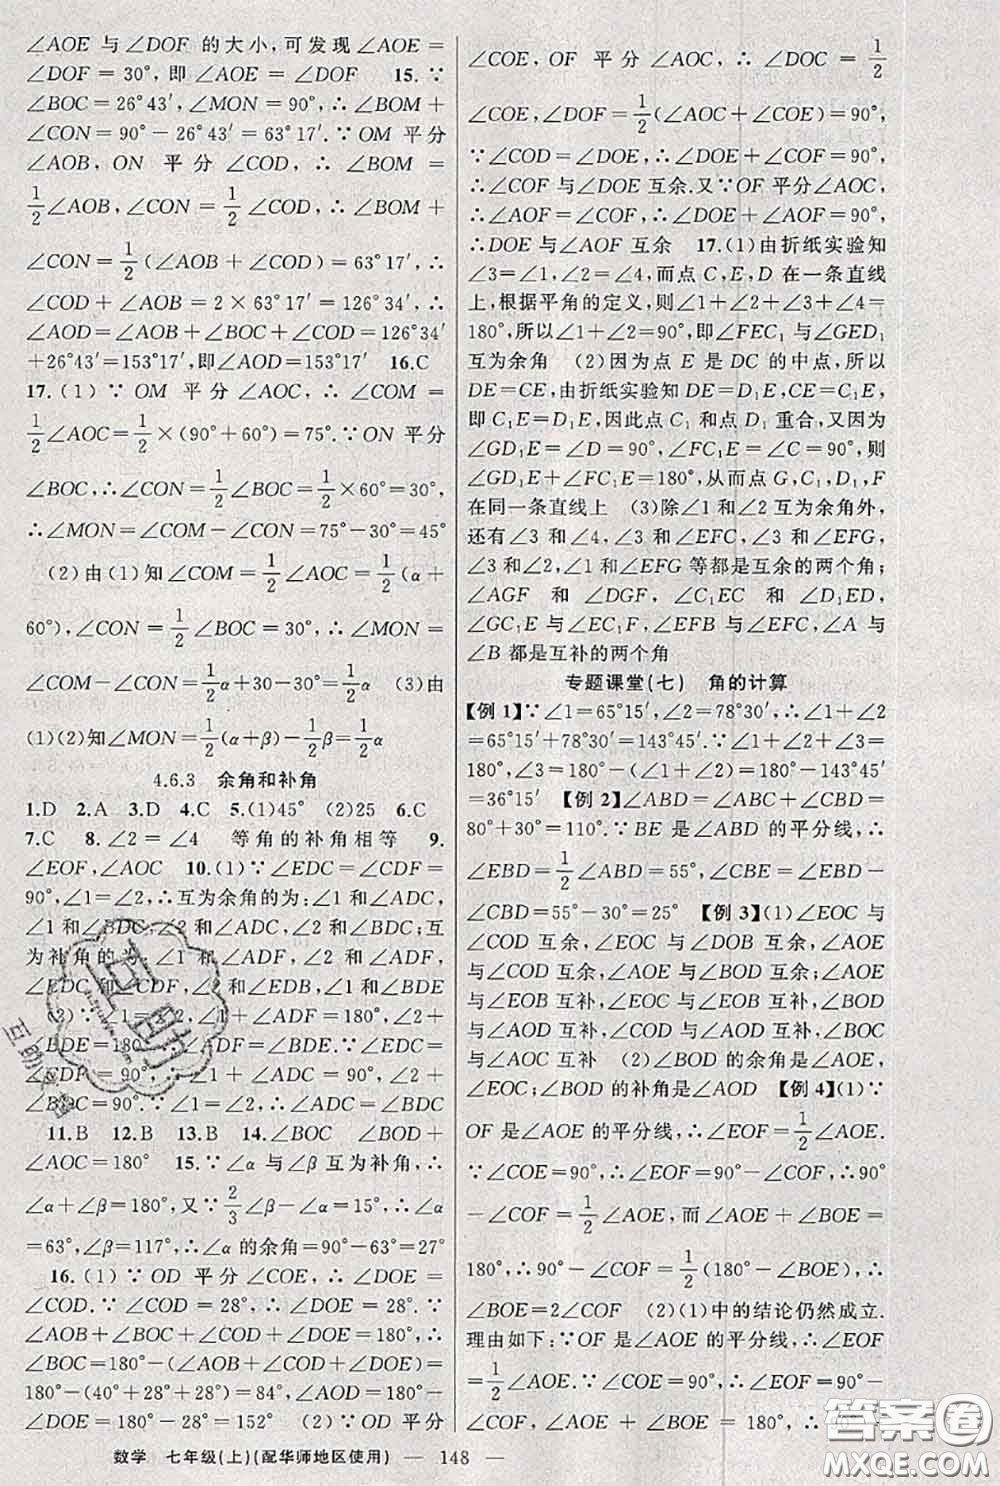 ∠AOE 与∠DOF 的大小,可发现∠AOE=
∠DOF=30°,即∠AOE=∠DOF 15.∵
∠BOC=26°43′,∠MON=90°,∴∠BOM+
∠CON=90°-26°43′=63°17′.∵OM 平分
∠AOB,ON 平分∠COD,∴∠BOM=
1/2∠AOB,∠CON=1/2∠COD,∴∠BOM+
∠CON=1/2(∠AOB+∠COD)=63°17′,∴
∠COD+∠AOB=2×63°17′=126°34′,∴
∠AOD=∠AOB+∠BOC+∠COD=126°34′
+26°43′=153°17′,即∠AOD=153°17′ 16.C
17.(1)∵OM 平分∠AOC,∴∠COM=
1/2∠AOC=1/2×(90°+60°)=75°.∵ON 平分
∠BOC,∴∠CON=1/2∠BOC=1/2×60°=30°,
∴∠MON=∠COM-∠CON=75°-30°=45°
(2)由(1)知∠COM=1/2∠AOC=1/2(α+
60°),∠CON=1/2∠BOC=30°,∴∠MON=
∠COM-∠CON=1/2α+30-30=1/2α (3)由
(1)(2)知∠MON=1/2(α+β)-1/2β=1/2α
4.6.3 余角和补角
1.D 2.A 3.D 4.C 5.(1)45° (2)25 6.C
7.C 8.∠2=∠4 等角的补角相等 9.
∠EOF,∠AOC 10.(1)∵∠EDC=∠CDF=
90°,∠1=∠2,∴互为余角的为:∠1和∠ADC,
∠1和∠BDC;∠2和∠ADC,∠2和∠BDC;互
为补角的为:∠1和∠ADF,∠2和∠ADF,
∠EDC和∠CDF,∠1和∠EDB,∠2和∠BDE
(2)∵∠1+∠ADF=180°,∠2+
∠BDE=180°,∴∠ADF=∠BDE.∵
∠EDF=90°,∴∠1+∠ADC=90°,∠2+
∠BDC=90°.∵∠1=∠2,∴∠ADC=∠BDC
11.B 12.B 13.B 14.∠BOC ∠BOD+
∠AOC=180° 15.∵∠α与∠β互为补角,∴
∠α+∠β=180°,又∵2/3∠β-∠α=15°,∴∠α
=63°,∠β=117°,∴∠α的余角=90°-63°=27°
16.(1)∵OD 平分∠COE,∴∠DOE=
∠COD.∵∠COD=28°,∴∠DOE=28°.∵
∠AOB+∠BOC+∠COD+∠DOE=180°,∴
∠BOC=180°-(∠AOB+∠COD+∠DOE)=
180°-(40°+28°+28°)=84°,∠AOD=180°-
∠DOE=180°-28°=152° (2)∵OD 平分
∠COE,OF 平分∠AOC,∴∠DOC=1/2
∠COE,∠DOF=1/2(∠AOC+∠COE)=90°,
∵∠COD=∠DOE,∴∠DOE+∠COF=90°,
∴∠COF与∠DOE互余.又∵OF平分∠AOC,
∴∠AOF=∠COF,∴∠DOE+∠AOF=90°,
∴DOE与∠AOF互余 17.(1)由折纸实验知
∠3=∠1,∠2=∠4,而点C,E,D在一条直线
上,根据平角的定义,则∠1+∠2+∠3+∠4=
180°,所以∠1+∠2=90°,即∠FEC₁与∠GED₁
互为余角 (2)因为点E是DC的中点,所以
DE=CE,由折纸实验知DE=D₁E,CE=C₁E,
即C₁E=D₁E,因此点C₁和点D₁重合,又因为
∠GD₁E=∠D=90°,∠FC₁E=∠C=90°,则
∠GD₁E+∠FC₁E=180°,从而点G,C₁,D₁,F
在同一条直线上 (3)除∠1和∠2互为余角外,
还有∠3和∠4,∠3和∠EFC,∠3和∠EFG,
∠3和∠2,∠1和∠EFG等都是互余的两个角;
∠AGF和∠DGF,∠C₁EC和∠D₁ED,
∠GC₁E与∠EC₁F,∠EFB与∠EFC,∠A与
∠B都是互补的两个角
专题课堂(七) 角的计算
【例1】∵∠1=65°15′,∠2=78°30′,∴∠1+∠2
=65°15′+78°30′=143°45′.∵∠1+∠2+∠3=
180°,∴∠3=180°-(∠1+∠2)=180°-143°45′
=36°15′ 【例2】∠ABD=∠ABC+∠CBD=
80°+30°=110°.∵BE是∠ABD的平分线,∴
∠EBD=1/2∠ABD=55°,∠CBE=∠EBD-
∠CBD=55°-30°=25° 【例3】(1)∠EOC与
∠COD互余,∠EOC与∠DOB互余,∠AOE
与∠COD互余,∠AOE与∠BOD互余,∠AOE
与∠EOB互补,∠EOC与∠EOB互补,∠BOD
与∠AOD互补,∠COD与∠AOD互补,∠BOC
与∠AOC互补 (2)∠BOD的余角是∠AOE,
∠EOC;∠BOD的补角是∠AOD 【例4】(1)∵
OF是∠AOE的平分线,∴∠EOF=1/2∠AOE.
∵∠COE=90°,∴∠EOF=90°-∠COF,∴90°
-∠COF=1/2∠AOE,而∠AOE+∠BOE=
180°,∴90°-∠COF=1/2(180°-∠BOE),∴
∠BOE=2∠COF (2)(1)中的结论仍然成立.
理由如下:∵OF是∠AOE的平分线,∴∠EOF
=1/2∠AOE.∵∠COE=90°,∴∠EOF=90°-
∠COF,∠AOE+∠BOE=180°,∴90°-
数学 七年级(上)(配华师地区使用) — 148 —
互助
答案圈
MXQE.COM